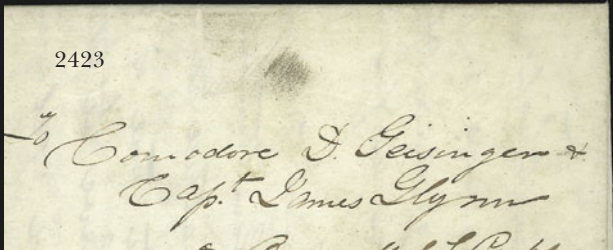 2423
To Comodore D. Geisinger &
Capt James Glynn